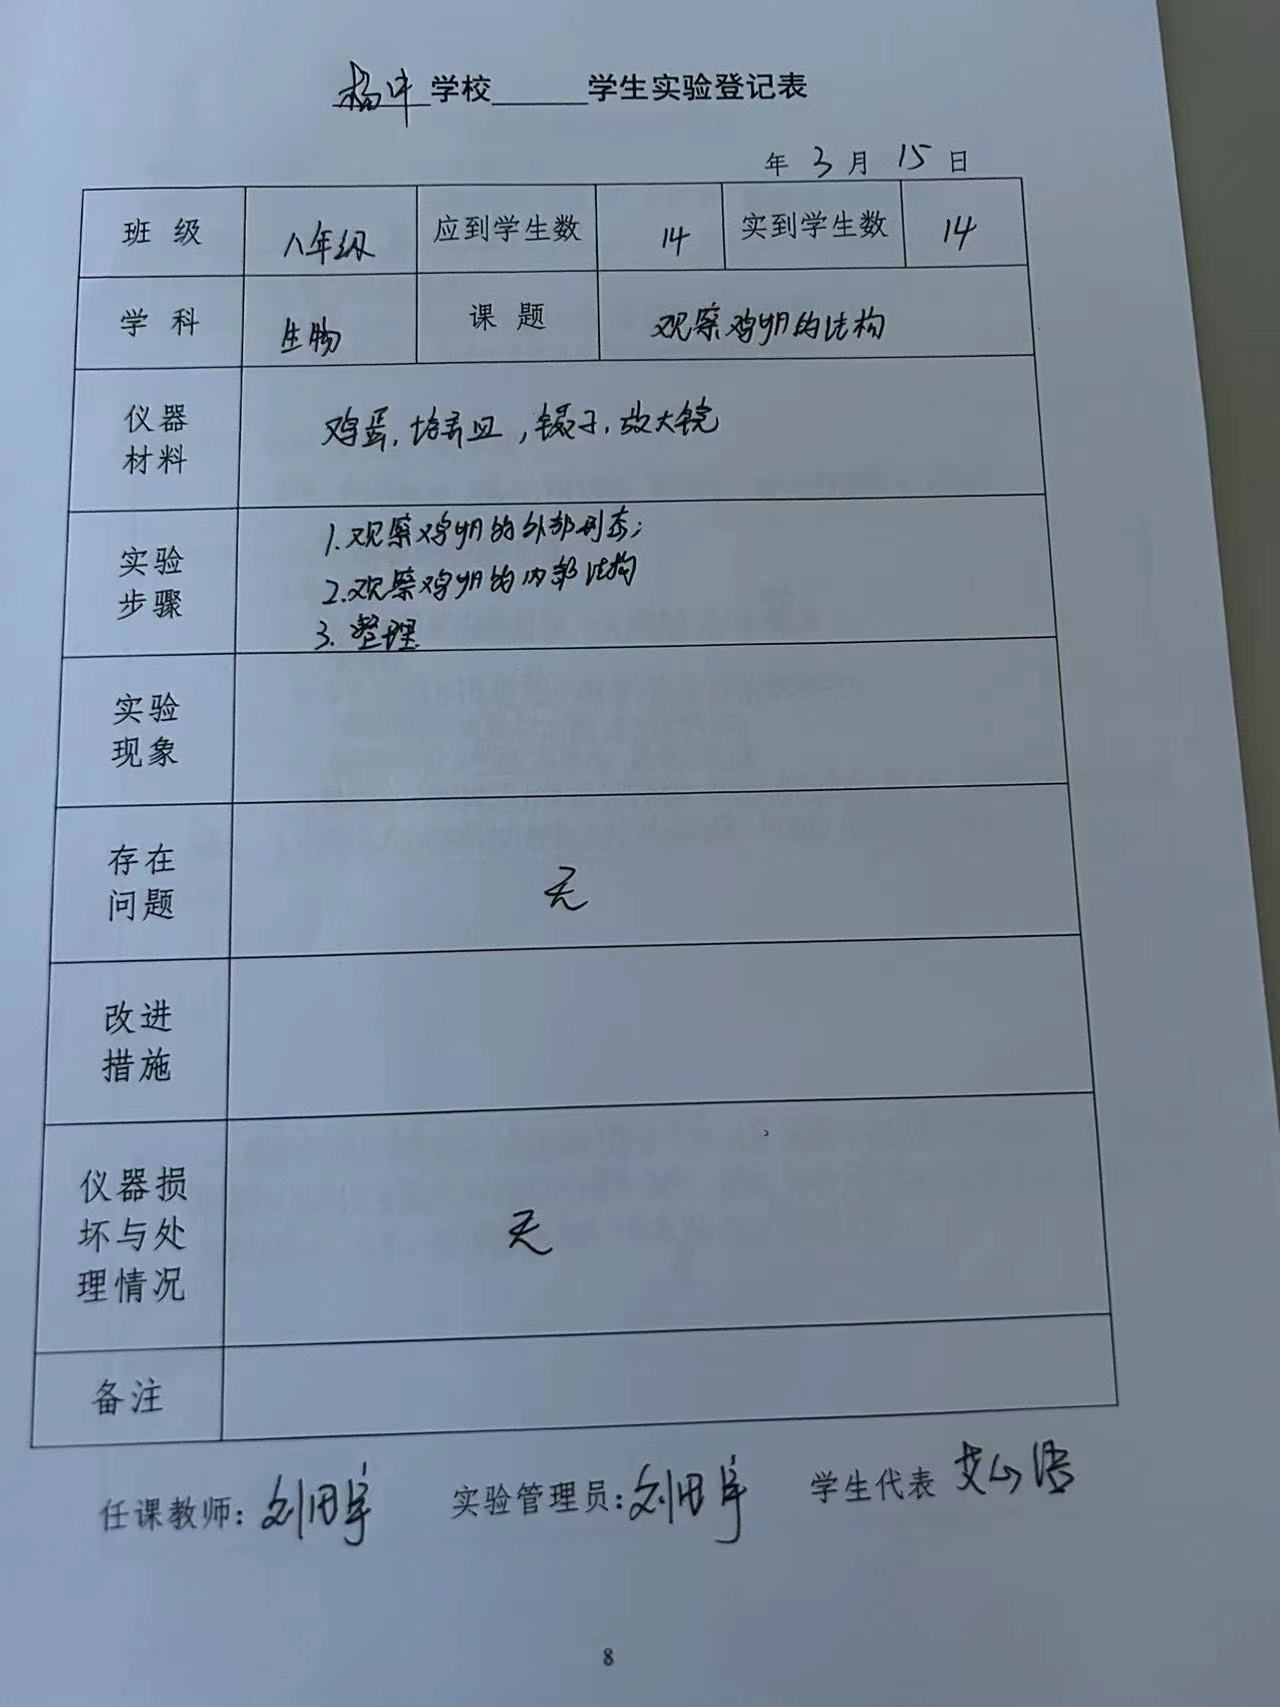 杨中学校______学生实验登记表
年 3 月 15 日
班级 八年级 应到学生数 14 实到学生数 14
学科 生物 课题 观察鸡卵的结构
仪器
材料
鸡蛋,培养皿,镊子,放大镜
实验
步骤
1.观察鸡卵的外部形态;
2.观察鸡卵的内部结构
3.整理.
实验
现象
存在
问题
无
改进
措施
仪器损
坏与处
理情况
无
备注
任课教师: 刘田宇 实验管理员: 刘田宇 学生代表 艾山
8